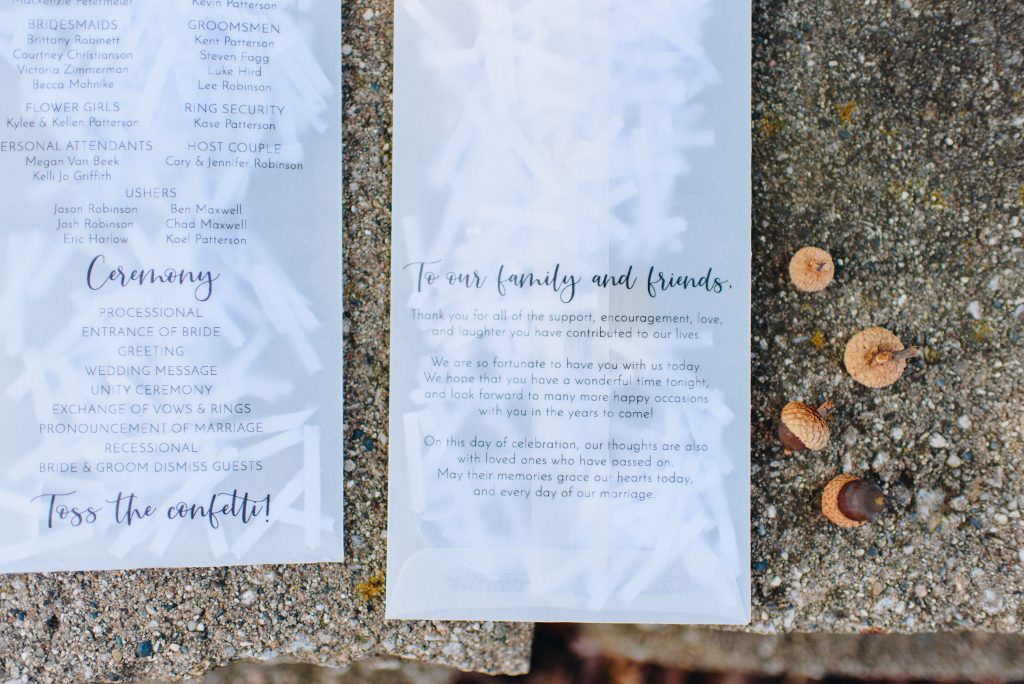 Mackenzie Petermeier
Kevin Patterson
BRIDESMAIDS
Brittany Robinett
Courtney Christianson
Victoria Zimmerman
Becca Mohnike
GROOMSMEN
Kent Patterson
Steven Fagg
Luke Hird
Lee Robinson
FLOWER GIRLS
Kylee & Kellen Patterson
RING SECURITY
Kase Patterson
ERSONAL ATTENDANTS
Megan Van Beek
Kelli Jo Griffith
HOST COUPLE
Cory & Jennifer Robinson
USHERS
Jason Robinson
Josh Robinson
Eric Harlow
Ben Maxwell
Chad Maxwell
Kael Patterson
Ceremony
PROCESSIONAL
ENTRANCE OF BRIDE
GREETING
WEDDING MESSAGE
UNITY CEREMONY
EXCHANGE OF VOWS & RINGS
PRONOUNCEMENT OF MARRIAGE
RECESSIONAL
BRIDE & GROOM DISMISS GUESTS
Toss the confetti!
To our family and friends,
Thank you for all of the support, encouragement, love,
and laughter you have contributed to our lives.
We are so fortunate to have you with us today.
We hope that you have a wonderful time tonight,
and look forward to many more happy occasions
with you in the years to come!
On this day of celebration, our thoughts are also
with loved ones who have passed on.
May their memories grace our hearts today,
and every day of our marriage.